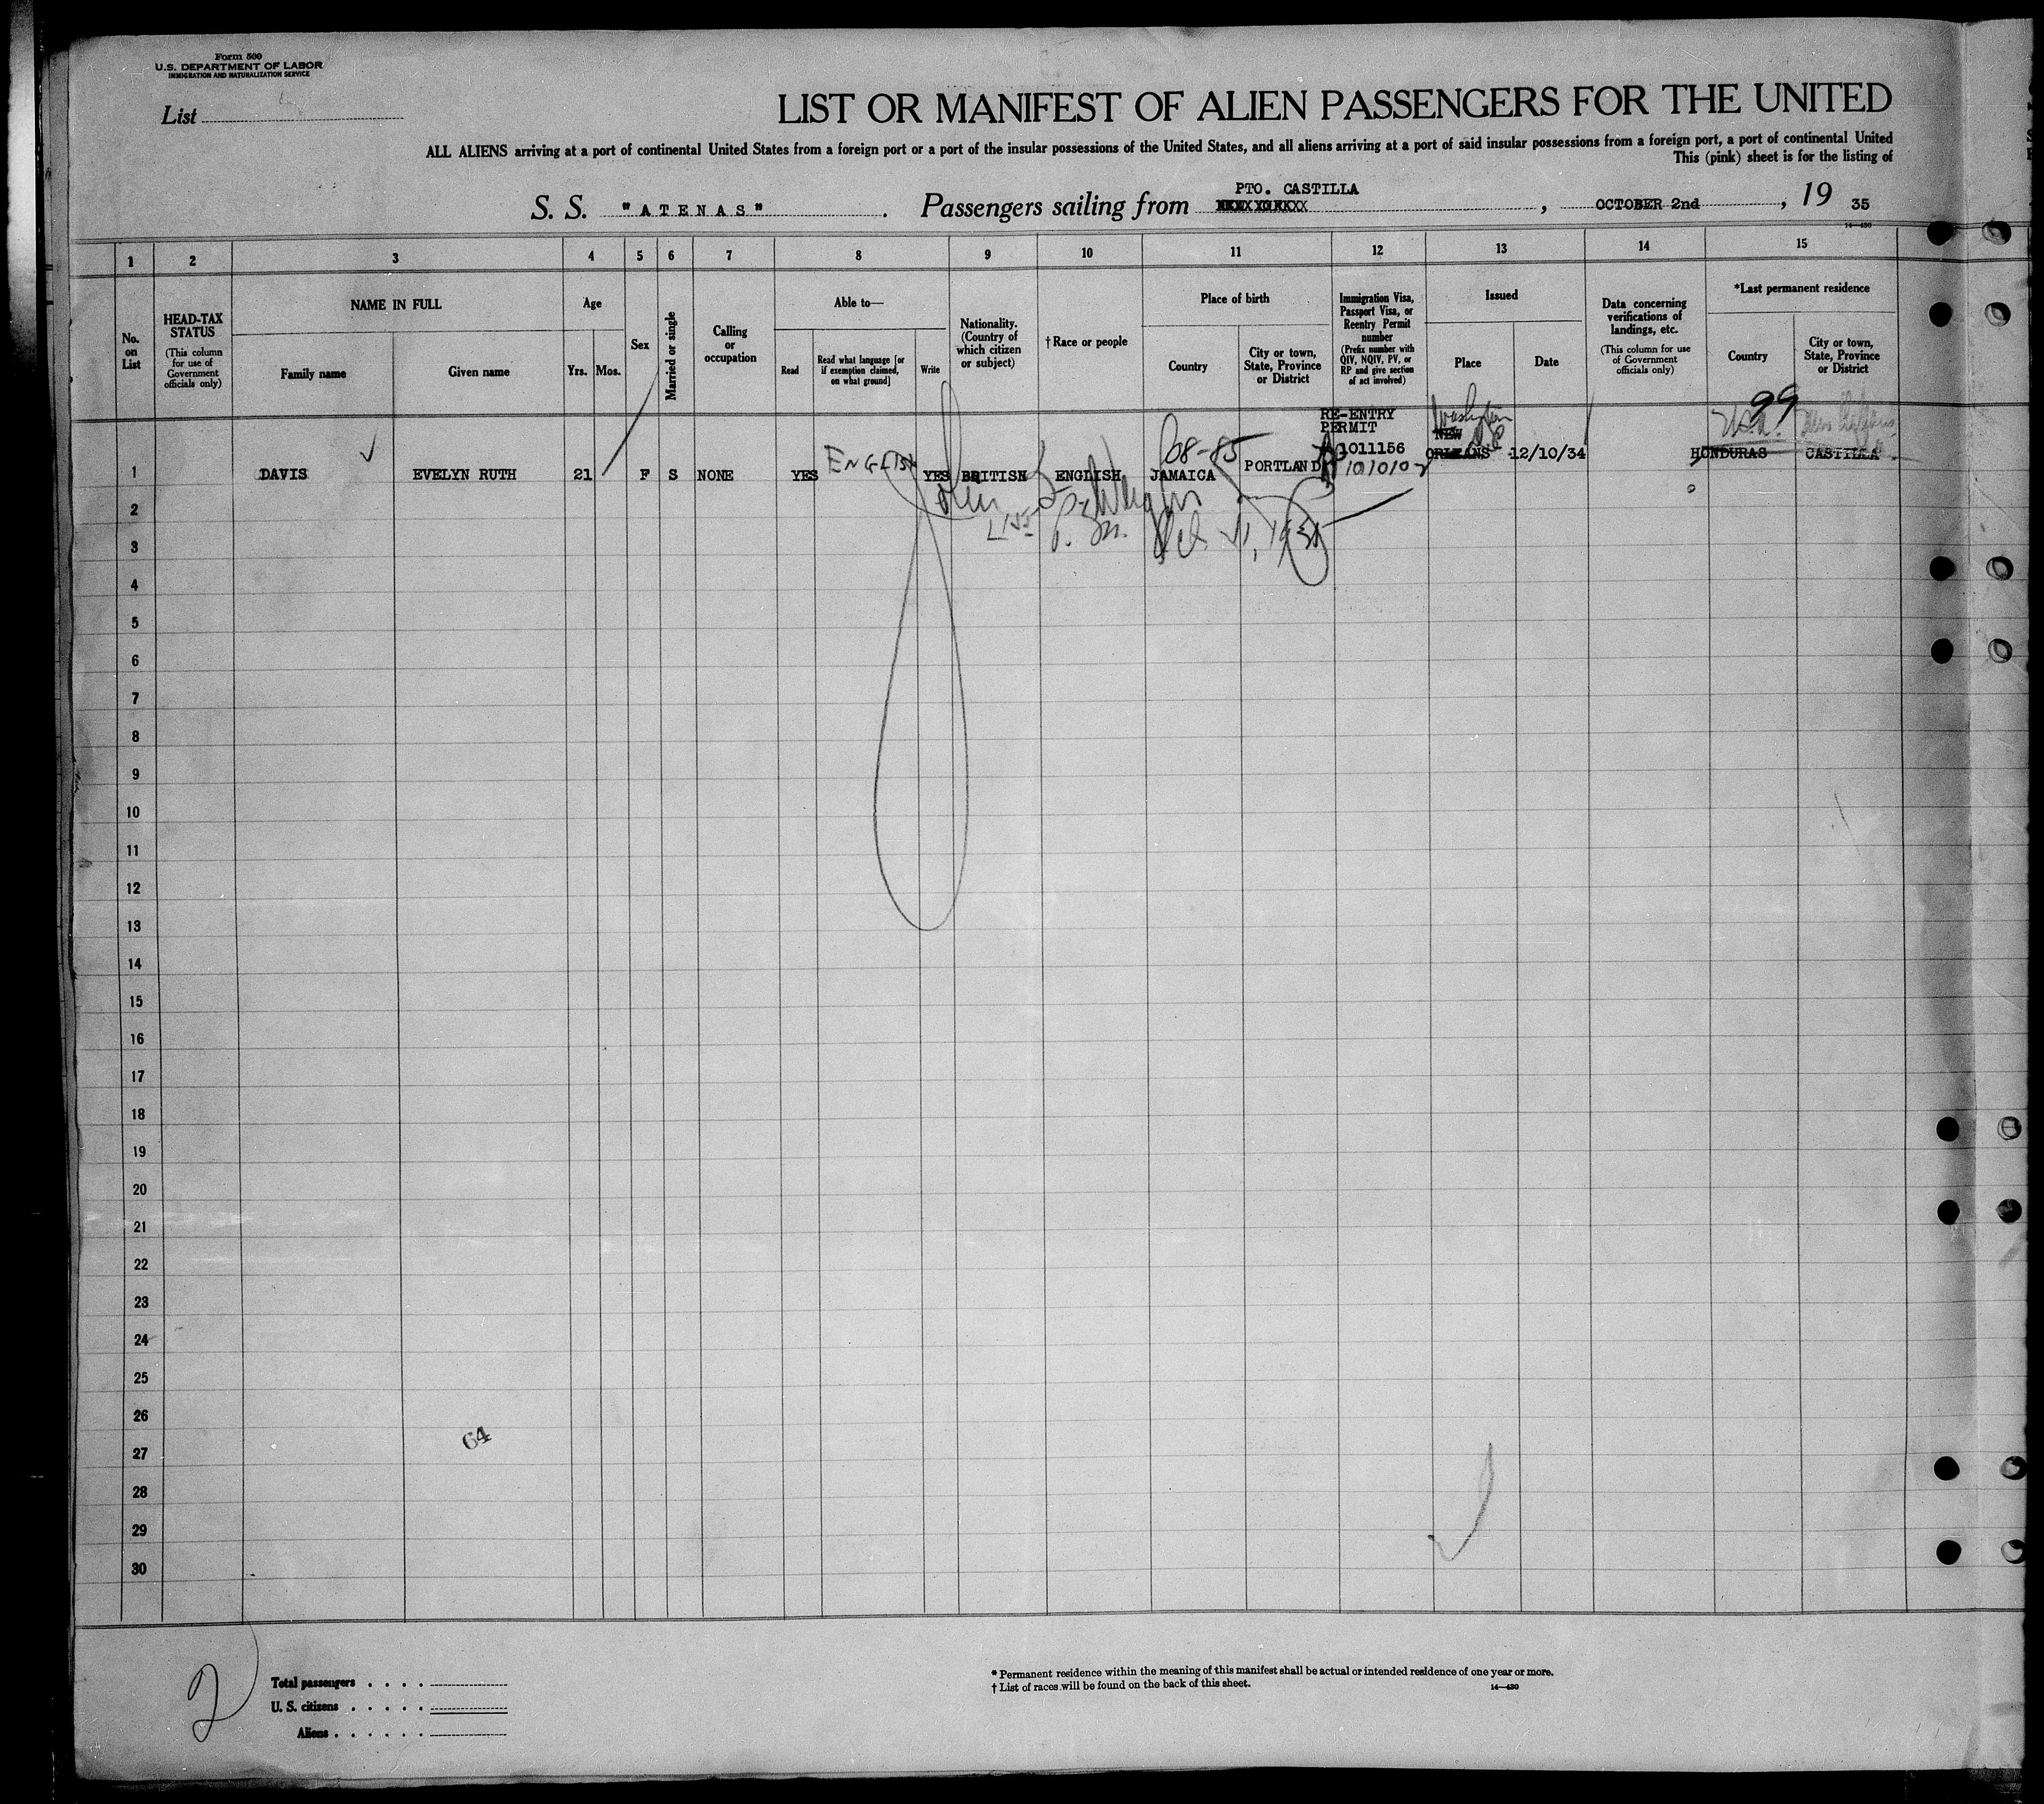 Form 500
U.S. DEPARTMENT OF LABOR
IMMIGRATION AND NATURALIZATION SERVICE
List
LIST OR MANIFEST OF ALIEN PASSENGERS FOR THE UNITED
ALL ALIENS arriving at a port of continental United States from a foreign port or a port of the insular possessions of the United States, and all aliens arriving at a port of said insular possessions from a foreign port, a port of continental United
This (pink) sheet is for the listing of
PTO. CASTILLA
S. S. "ATENAS". Passengers sailing from , OCTOBER 2nd, 19 35
14—430
1 2 3 4 5 6 7 8 9 10 11 12 13 14 15
No. on List
HEAD-TAX STATUS
(This column for use of Government officials only)
NAME IN FULL
Family name
Given name
Age
Yrs. Mos.
Sex
Married or single
Calling or occupation
Able to—
Read
Read what language [or if exemption claimed, on what ground]
Write
Nationality. (Country of which citizen or subject)
† Race or people
Place of birth
Country
City or town, State, Province or District
Immigration Visa, Passport Visa, or Reentry Permit number
(Prefix number with QIV, NQIV, PV, or RP and give section of act involved)
Issued
Place
Date
Data concerning verifications of landings, etc.
(This column for use of Government officials only)
*Last permanent residence
Country
City or town, State, Province or District
99
RE-ENTRY
PERMIT
Washington
NEW
D.C.
U.S.A. New Orleans
1 DAVIS EVELYN RUTH 21 F S NONE YES ENGLISH YES BRITISH ENGLISH JAMAICA PORTLAND 1011156 ORLEANS 12/10/34 HONDURAS CASTILLA
2
3
4
5
6
7
8
9
10
11
12
13
14
15
16
17
18
19
20
21
22
23
24
25
26
64
27
28
29
30
2
Total passengers
U. S. citizens
Aliens
* Permanent residence within the meaning of this manifest shall be actual or intended residence of one year or more.
† List of races will be found on the back of this sheet.
14—430